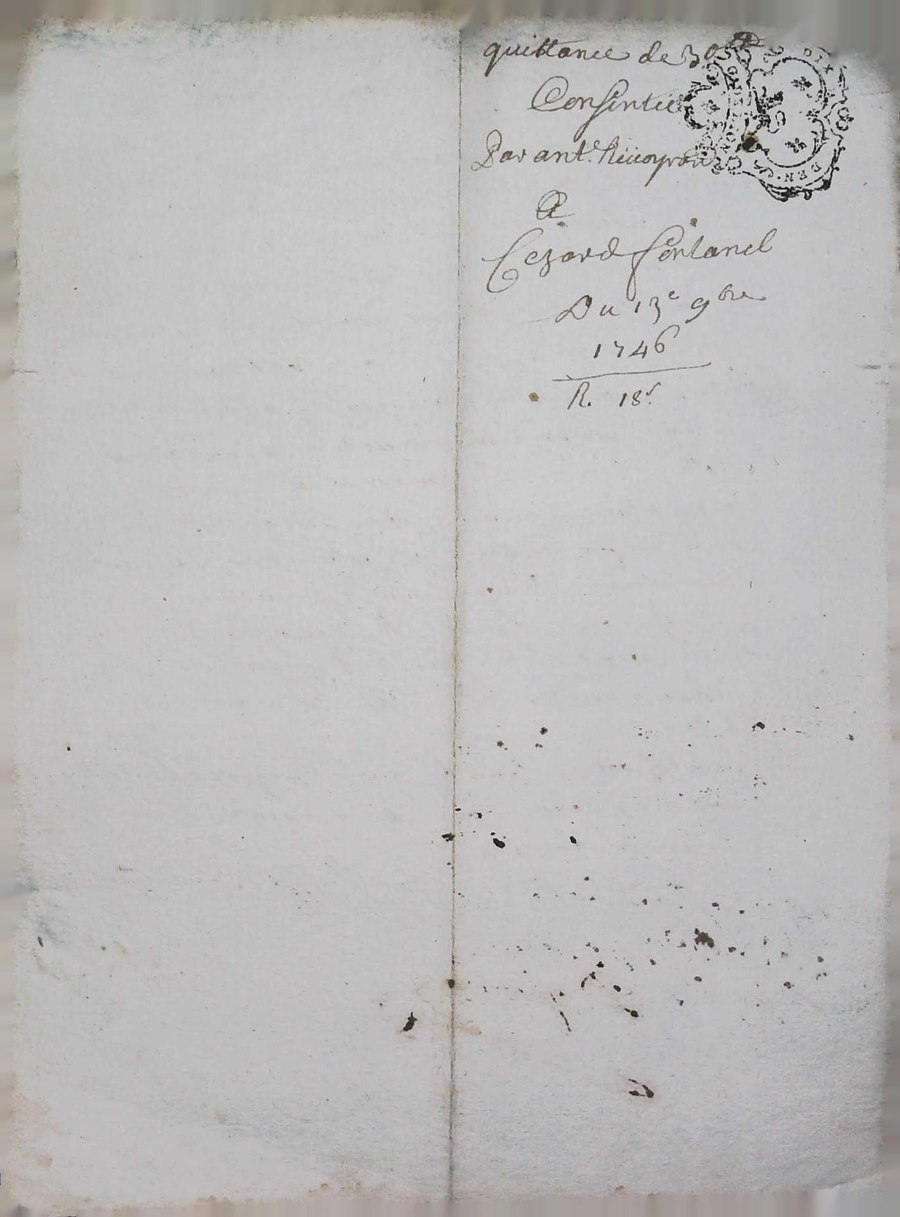 quittance de 30#
Consentie
Par antᵉ
A
Cezard fontanel
Du 13ᵉ 9bre
1746
R. 18ˢ
DIX
DEN.